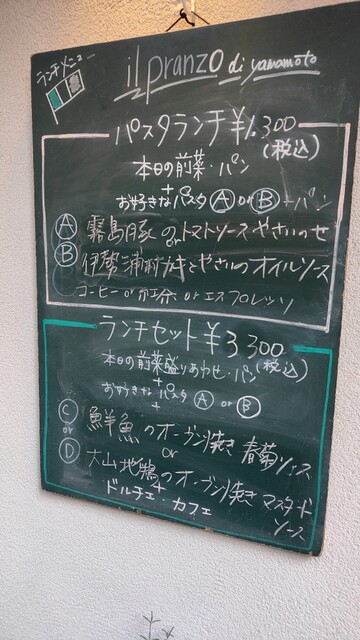 ランチメニュー
il pranzo di yamamoto
パスタランチ ¥1.300
(税込)
本日の前菜・パン
+
お好きなパスタ Ⓐ or Ⓑ + パン
Ⓐ 霧島豚のトマトソースやさいのせ
or
Ⓑ 伊勢浦村カキとやさいのオイルソース
コーヒー or 紅茶 or エスプレッソ
ランチセット ¥3300
(税込)
本日の前菜盛りあわせ・パン
+
お好きなパスタ Ⓐ or Ⓑ
+
Ⓒ 鮮魚のオーブン焼き 春菊ソース
or or
Ⓓ 大山地鶏のオーブン焼き マスタード
ソース
+
ドルチェ・カフェ